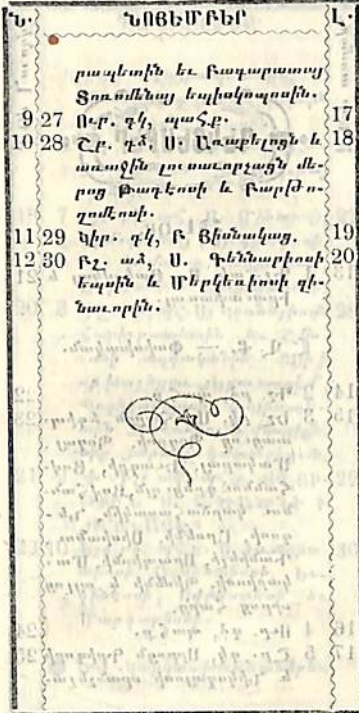 Ն. ՆՈՅԵՄԲԵՐ Լ.
րապետին եւ Բագարատայ
Տորոմենայ եպիսկոպոսին.
9 27 Ուր. դկ, պահ.ք. 17
10 28 Շբ. դձ, Ս. Առաքելոցն և 18
առաջին լուսաւորչացն մե-
րոց Թադէոսի և Բարթո-
ղոմէոսի.
11 29 Կիր. դկ, Բ Յիսնակաց. 19
12 30 Բշ. աձ, Ս. Գեննարիոսի 20
եպսին և Մերկեռիոսի զի-
նաւորին.